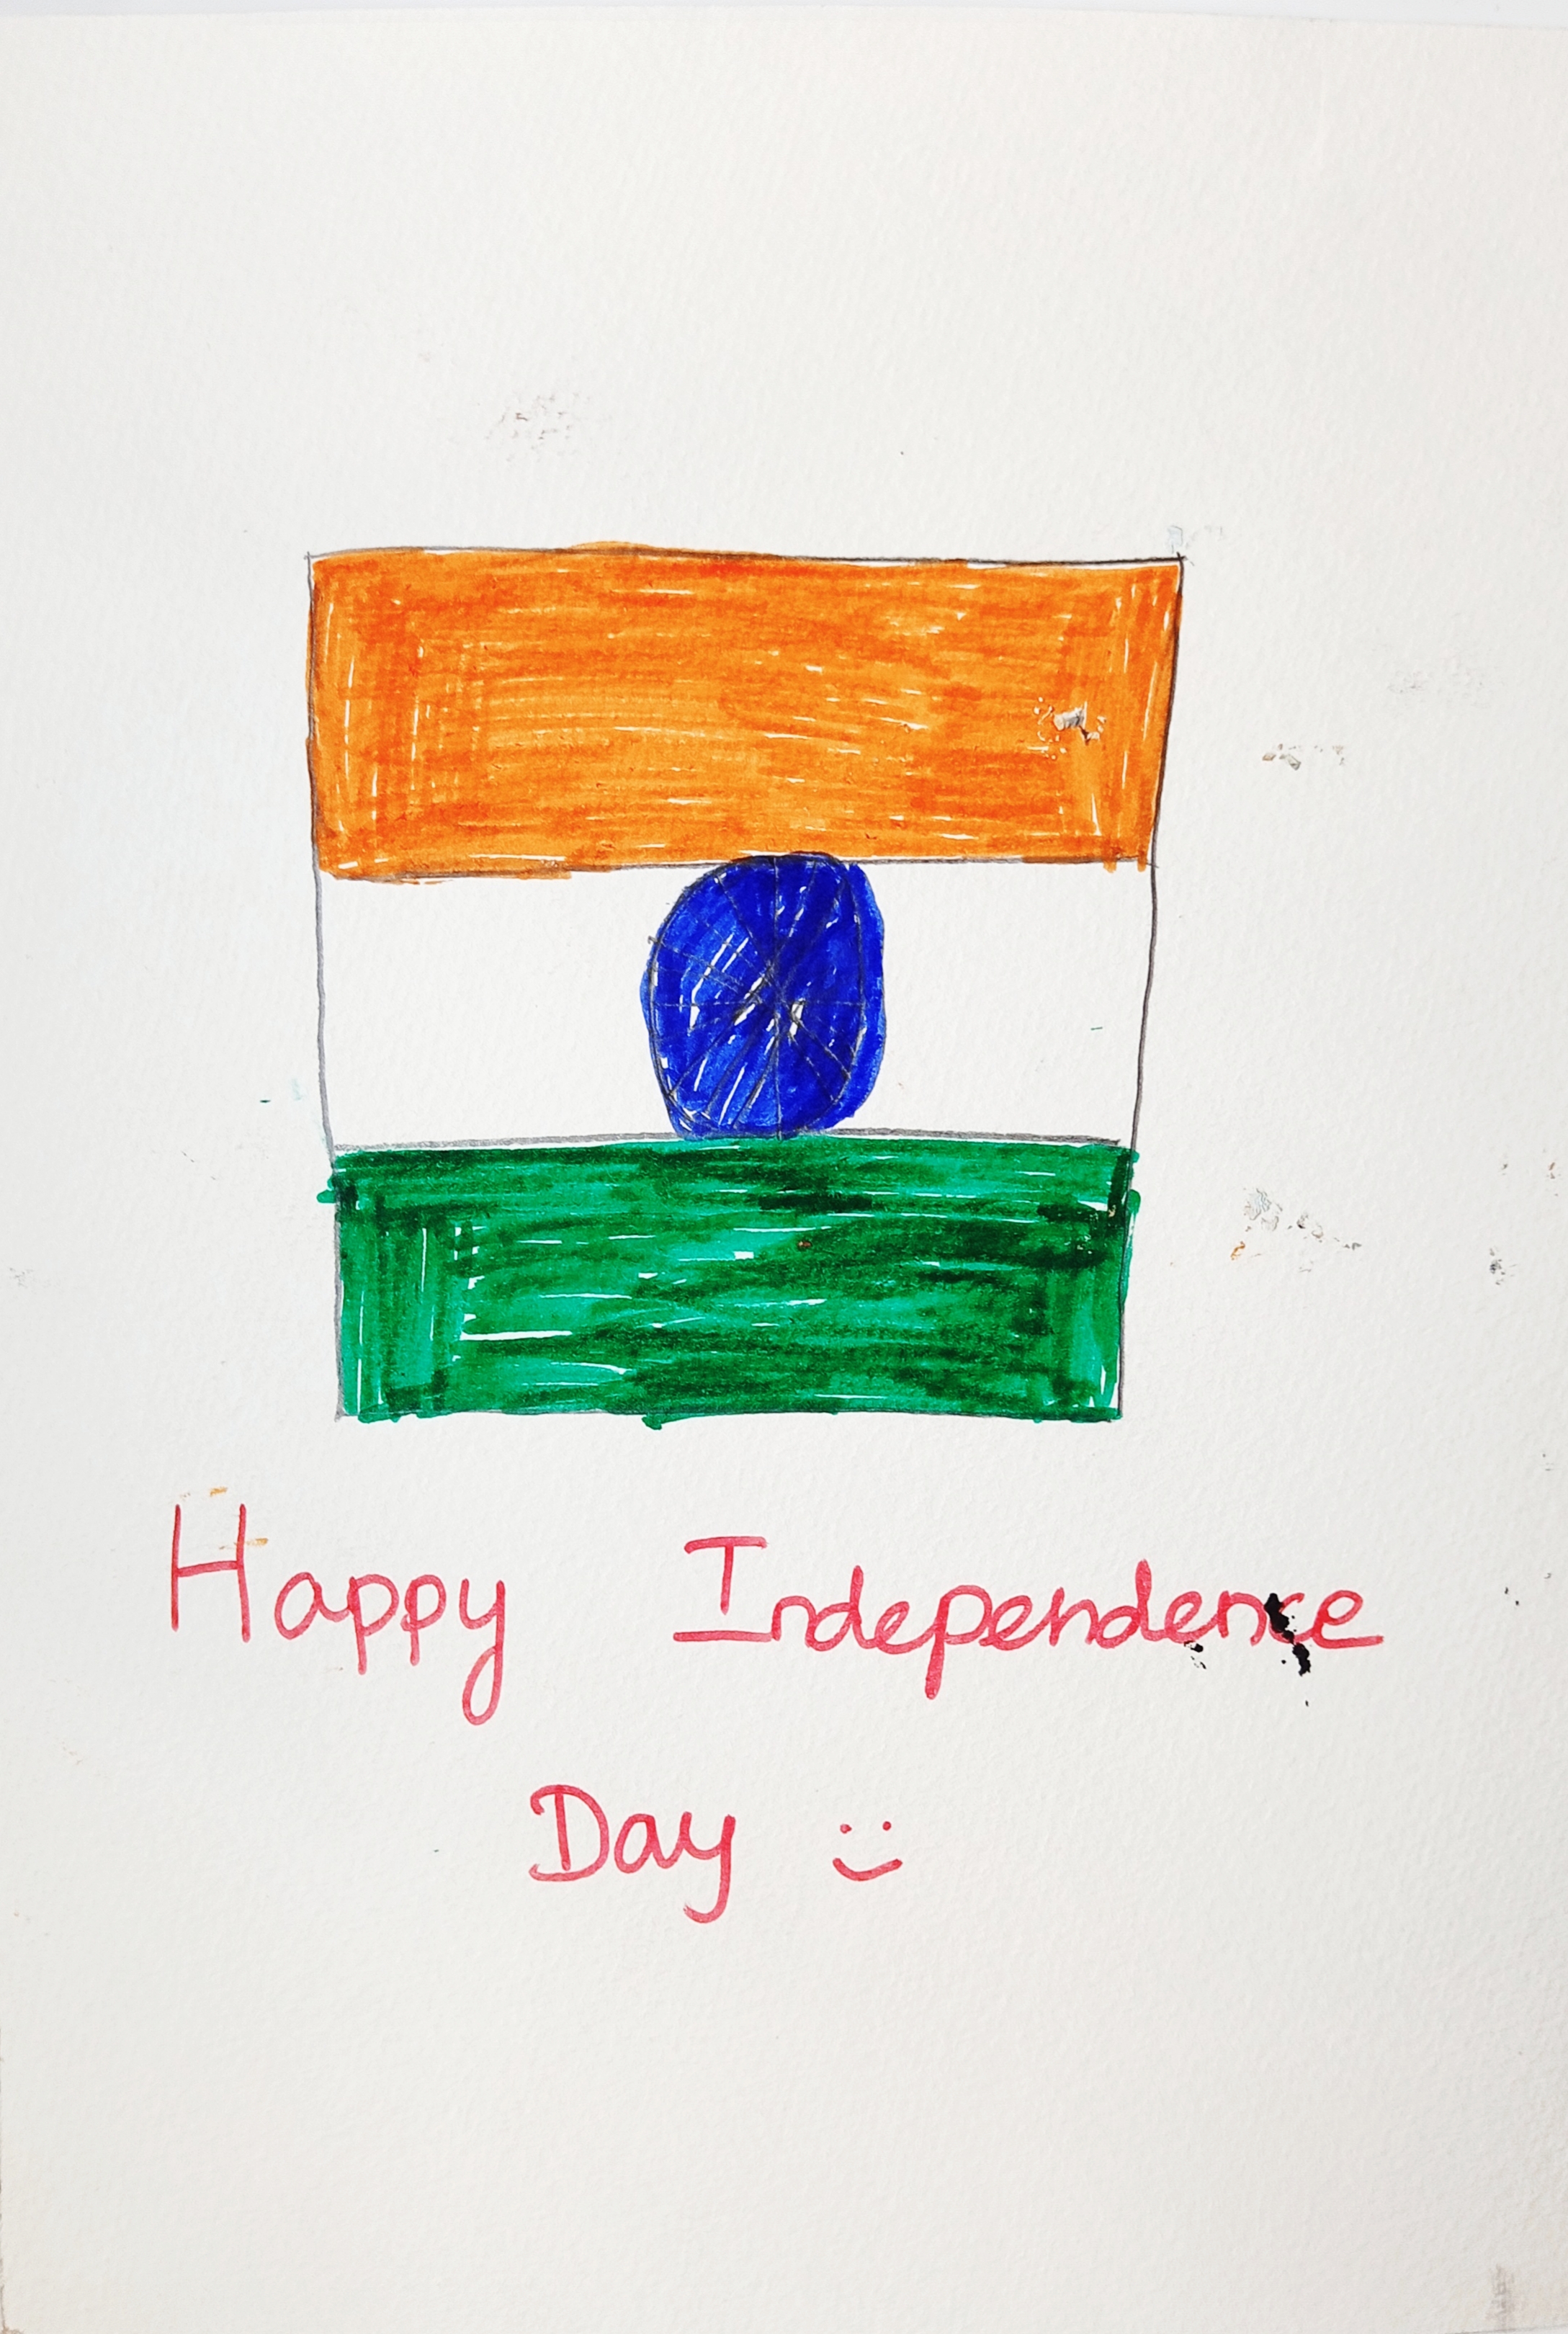 Happy Independence
Day :)